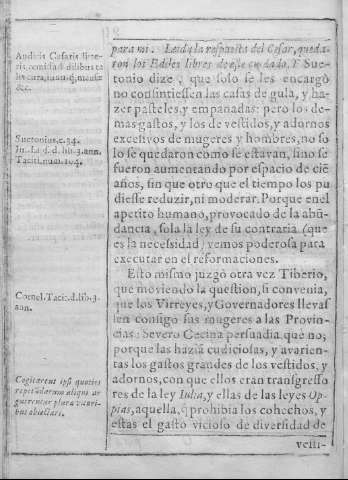 para mi. Leida la respuesta del Cesar, queda-
ron los Ediles libres de este cuidado. Y Sue-
tonio dize, que solo se les encargò
no consintiessen las casas de gula, y ha-
zer pasteles, y empanadas: pero los de-
mas gastos, y los de vestidos, y adornos
excesivos de mugeres y hombres, no so
lo se quedaron como se estavan, sino se
fueron aumentando por espacio de ciẽ
años, sin que otro que el tiempo los pu
diesse reduzir, ni moderar. Porque en el
apetito humano, provocado de la abũ-
dancia, sola la ley de su contraria (que
es la necessidad) vemos poderosa para
executar en el reformaciones.
Esto mismo juzgò otra vez Tiberio,
que moviendo la question, si convenia,
que los Virreyes, y Governadores llevas
sen consigo sus mugeres a las Provin-
cias: Severo Cecina persuadia que no;
porque las haziã cudiciosas, y avarien-
tas los gastos grandes de los vestidos, y
adornos, con que ellos eran transgresso
res de la ley Iulia, y ellas de las leyes Op-
pias, aquella, q̃ prohibia los cohechos, y
estas el gasto vicioso de diversidad de
vesti-
Auditis Cæsaris litte-
ris, remissa
&c.
Suetonius, c. 34.
Taciti, num. 104.
Cornel. Tacit. d. lib. 3.
ann.
Cogitarent ipsi quoties
repetundarum aliqui ar
guerentur plura uxori-
bus obiectari.